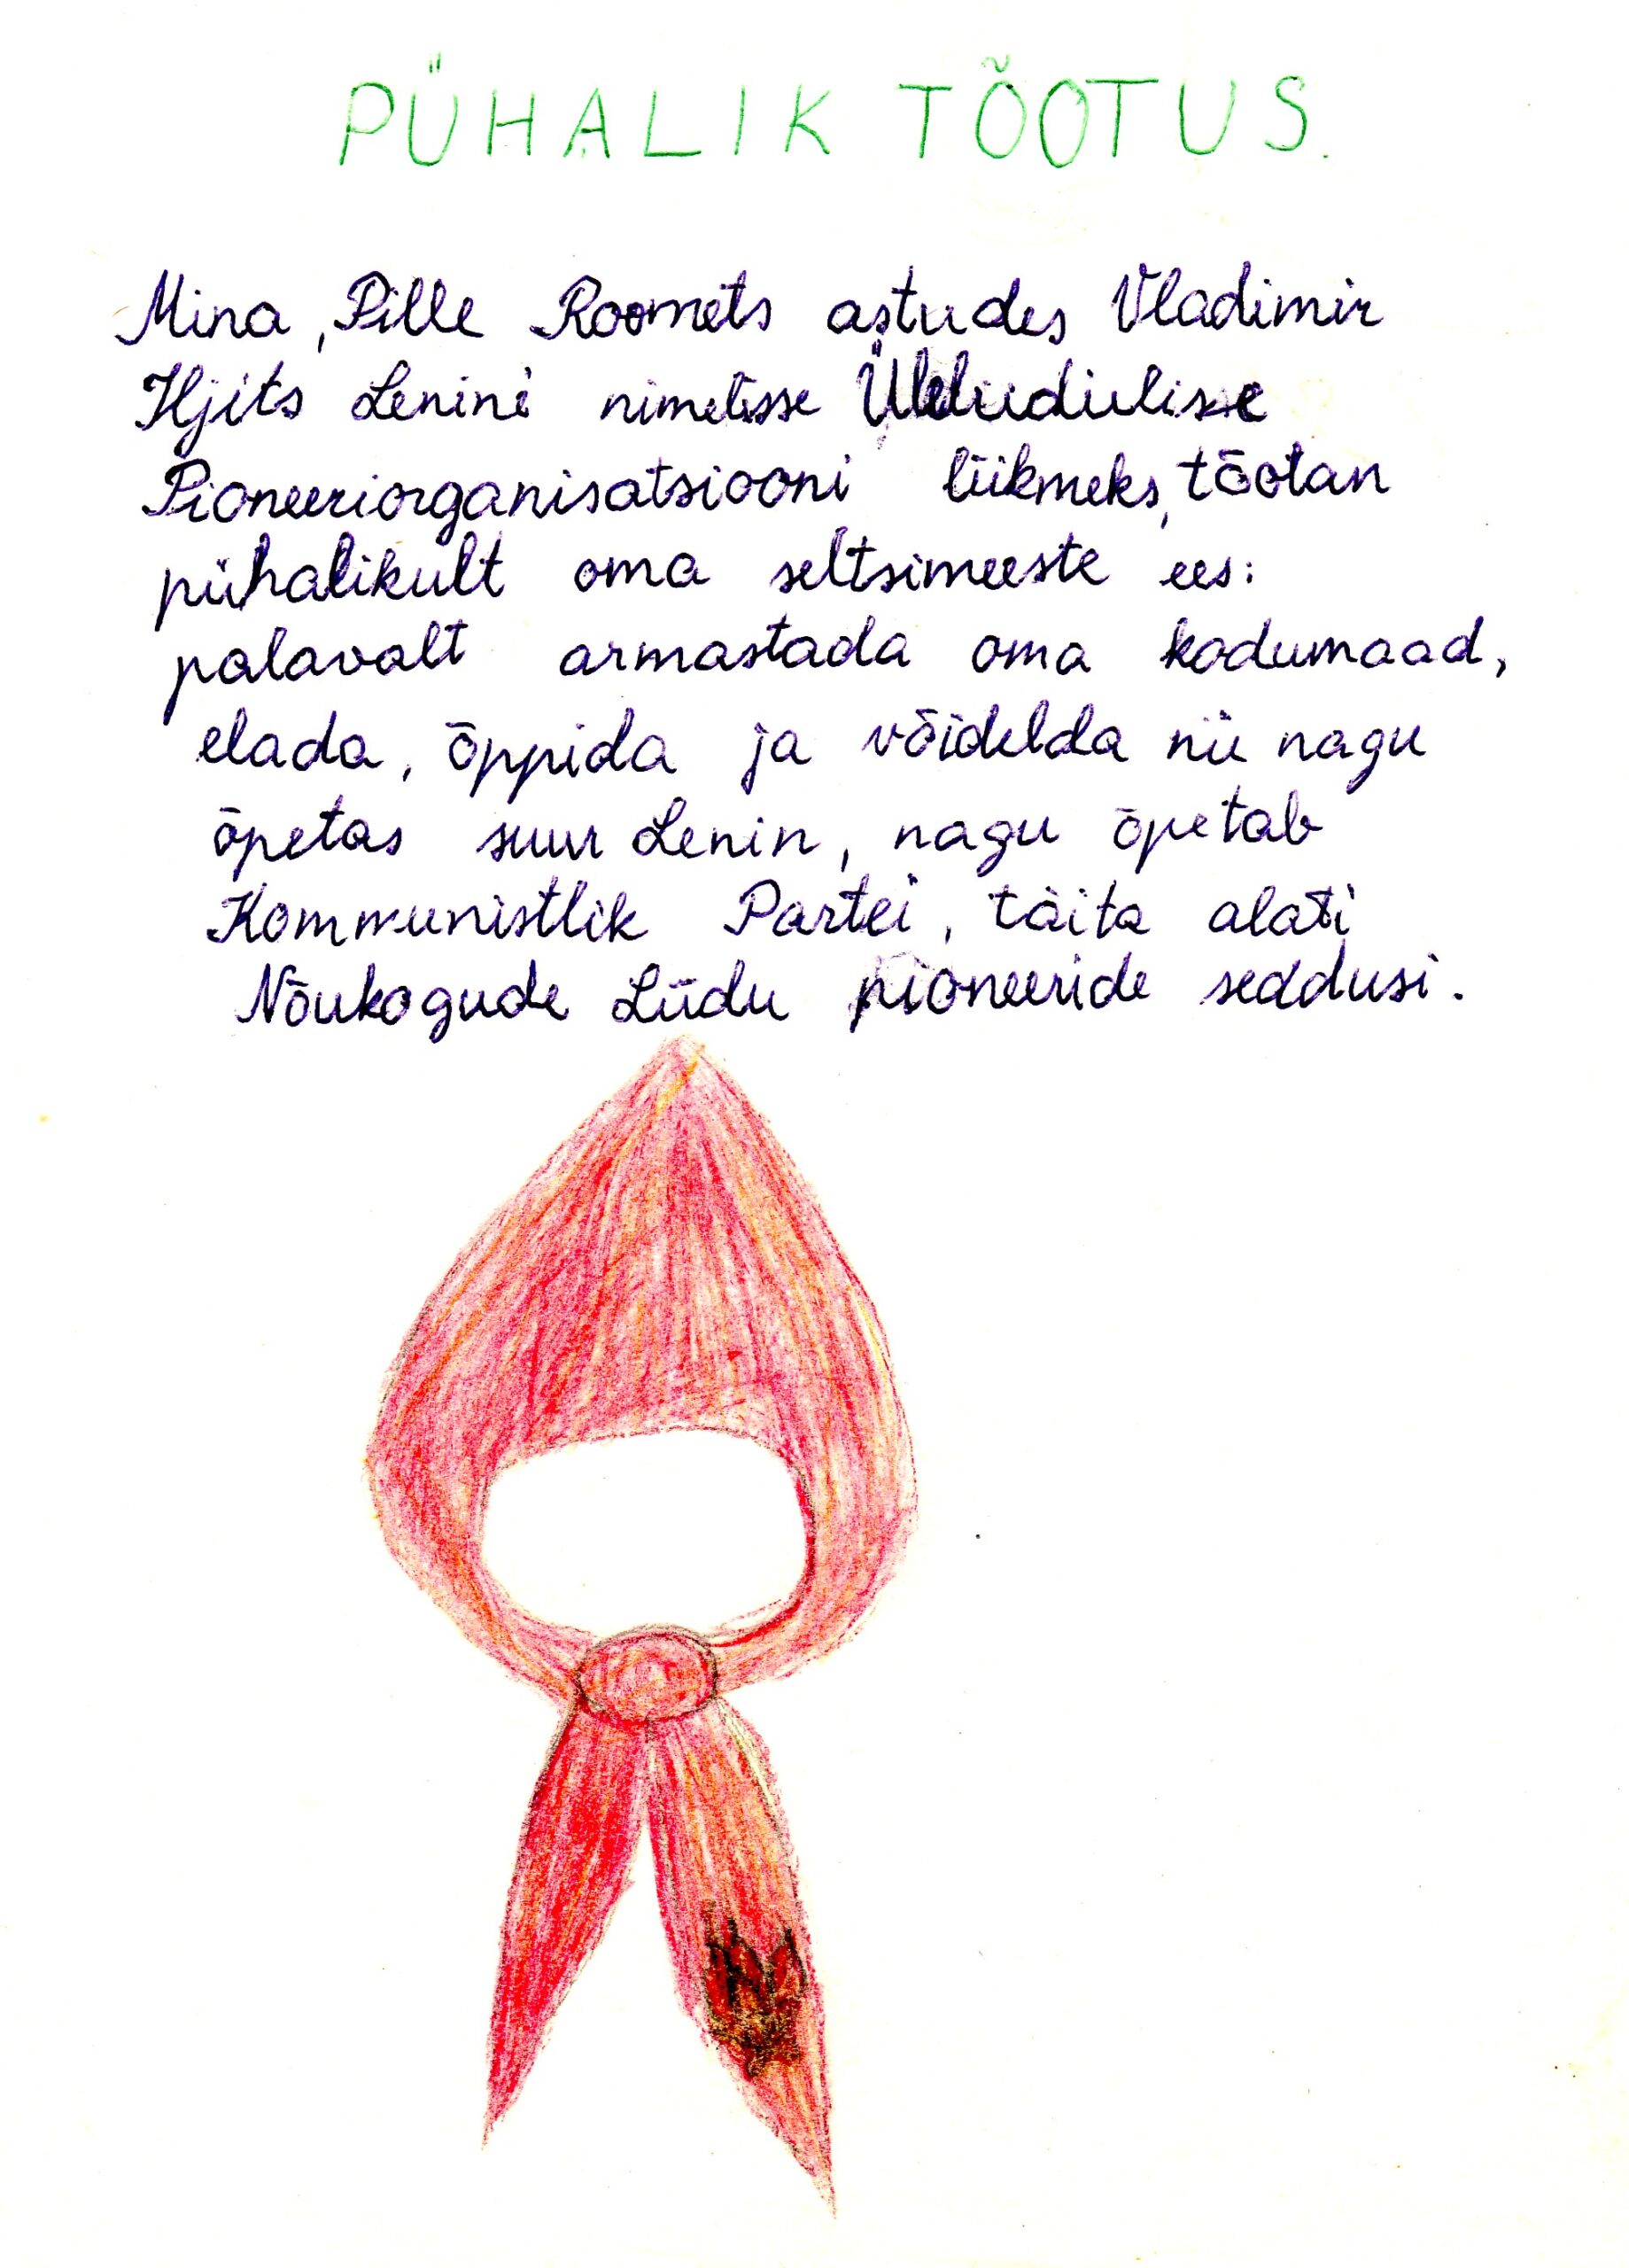 PÜHALIK TÕOTUS.
Mina, Pille Roomets astudes Vladimir
Iljits Lenini nimelisse Üleliidulisse
Pioneeriorganisatsiooni liikmeks, tõotan
pühalikult oma seltsimeeste ees:
palavalt armastada oma kodumaad,
elada, õppida ja võidelda nii nagu
õpetas suur Lenin, nagu õpetab
Kommunistlik Partei, täita alati
Nõukogude Liidu pioneeride seddusi.